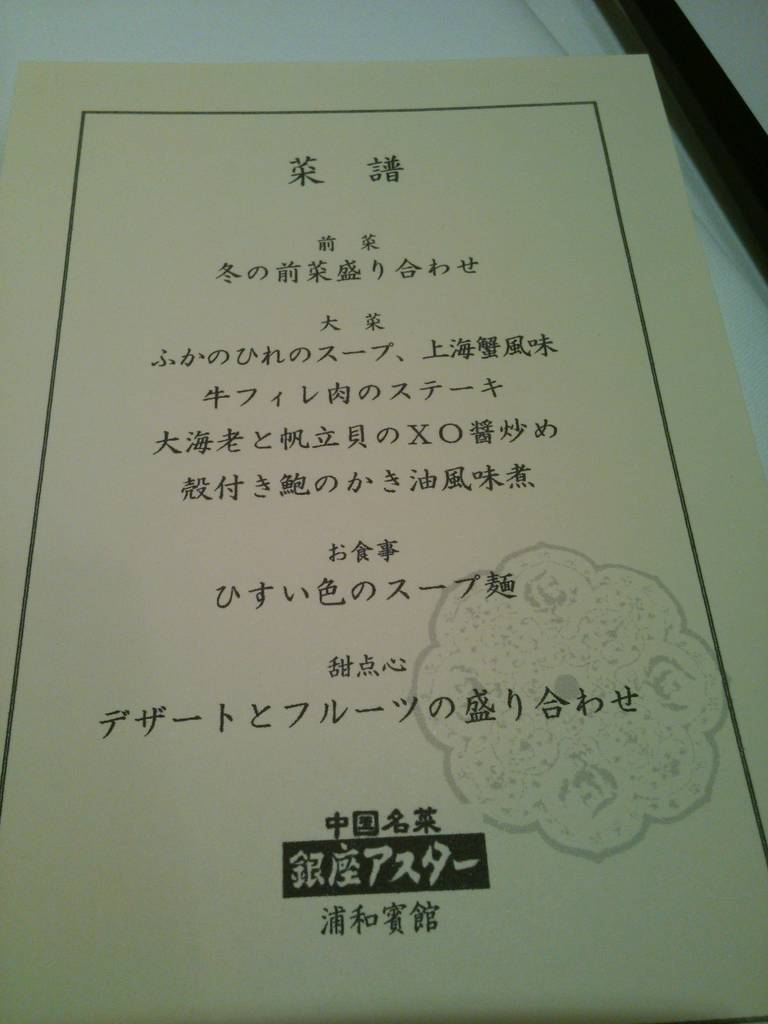 菜 譜
前 菜
冬の前菜盛り合わせ
大 菜
ふかのひれのスープ、上海蟹風味
牛フィレ肉のステーキ
大海老と帆立貝のXO醤炒め
殻付き鮑のかき油風味煮
お食事
ひすい色のスープ麺
甜点心
デザートとフルーツの盛り合わせ
中国名菜
銀座アスター
浦和賓館